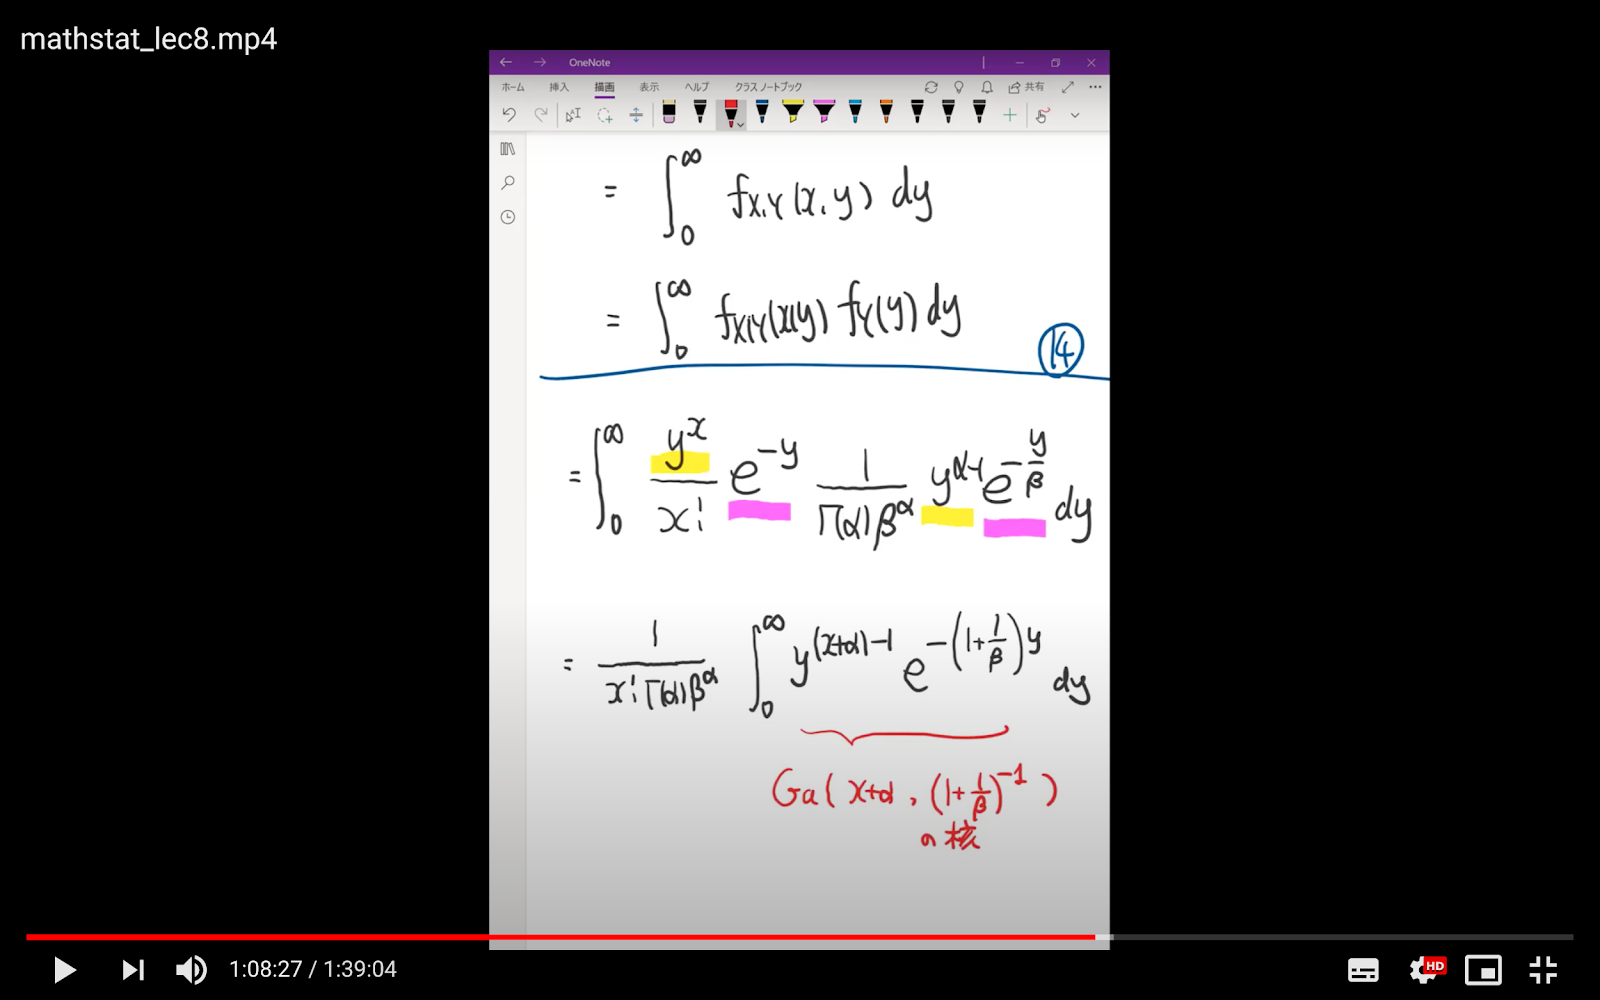 mathstat_lec8.mp4
OneNote
ホーム 挿入 描画 表示 ヘルプ クラス ノートブック 共有
= ∫₀^∞ f_{X,Y}(x,y) dy
= ∫₀^∞ f_{X|Y}(x|y) f_Y(y) dy
⑭
= ∫₀^∞ y^x/x! e^{-y} 1/(Γ(α)β^α) y^{α-1} e^{-y/β} dy
= 1/(x!Γ(α)β^α) ∫₀^∞ y^{(x+α)-1} e^{-(1+1/β)y} dy
Ga(x+α, (1+1/β)^{-1})
の核
1:08:27 / 1:39:04
HD